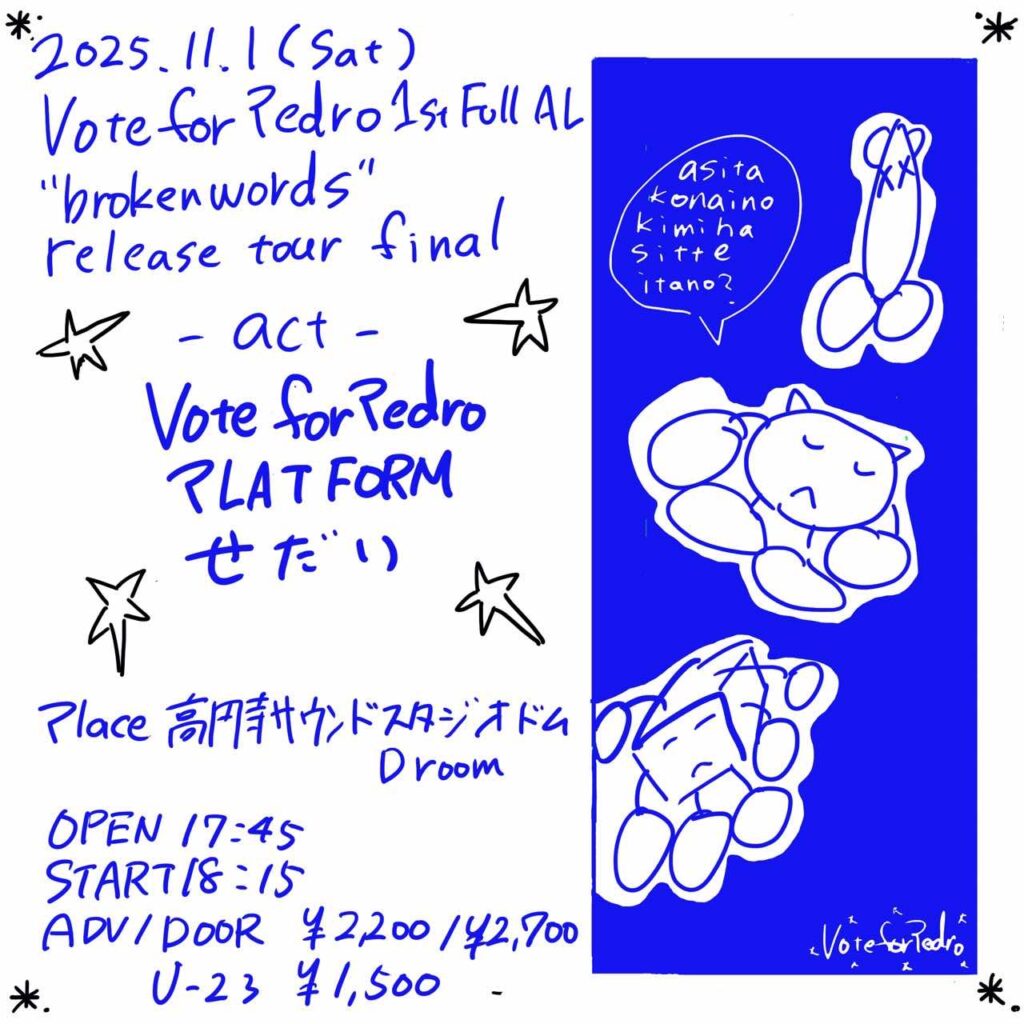 2025.11.1(Sat)
Vote for Pedro 1st Full AL
"brokenwords"
release tour final
- act -
Vote for Pedro
PLATFORM
せだい
Place 高円寺サウンドスタジオドム
D room
OPEN 17:45
START 18:15
ADV/DOOR ¥2,200/¥2,700
U-23 ¥1,500
asita
konaino
kimiha
sitte
itano?
Vote for Pedro